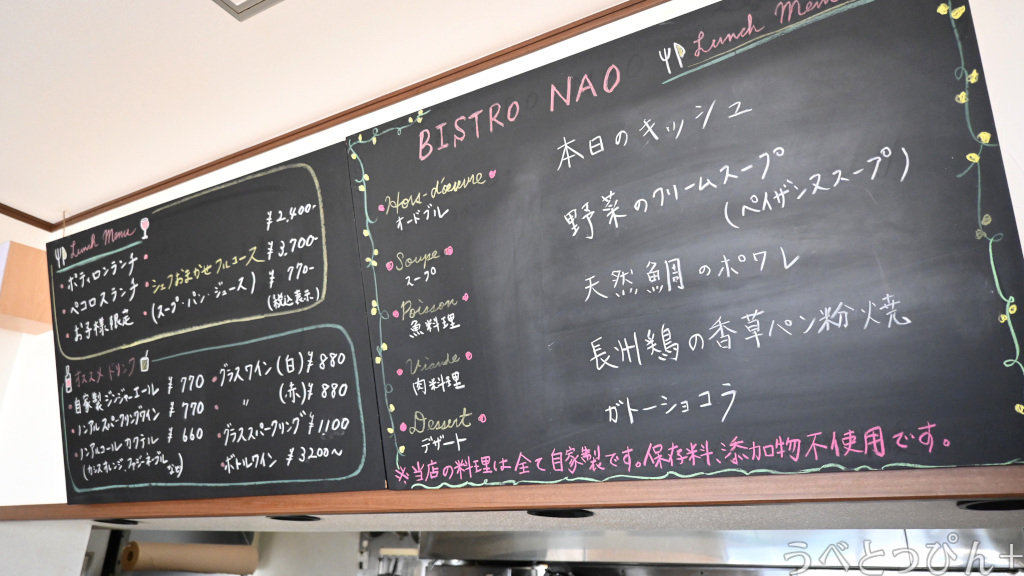 Lunch Menu
・ポティロンランチ ¥2,400-
・ペコロスランチ シェフおまかせフルコース ¥3,700-
・お子様限定 (スープ・パン・ジュース) ¥770-
(税込表示)
オススメ ドリンク
・自家製ジンジャーエール ¥770
・ノンアルスパークリングワイン ¥770
・ノンアルコールカクテル ¥660
・グラスワイン(白) ¥880
〃 (赤) ¥880
・グラススパークリング ¥1100
・ボトルワイン ¥3200〜
BISTRO NAO
Lunch Menu
Hors-d'œuvre
オードブル
本日のキッシュ
Soupe
スープ
野菜のクリームスープ
(ペイザンヌスープ)
Poisson
魚料理
天然鯛のポワレ
Viande
肉料理
長州鶏の香草パン粉焼
Dessert
デザート
ガトーショコラ
※当店の料理は全て自家製です。保存料、添加物不使用です。
うべとっぴん+